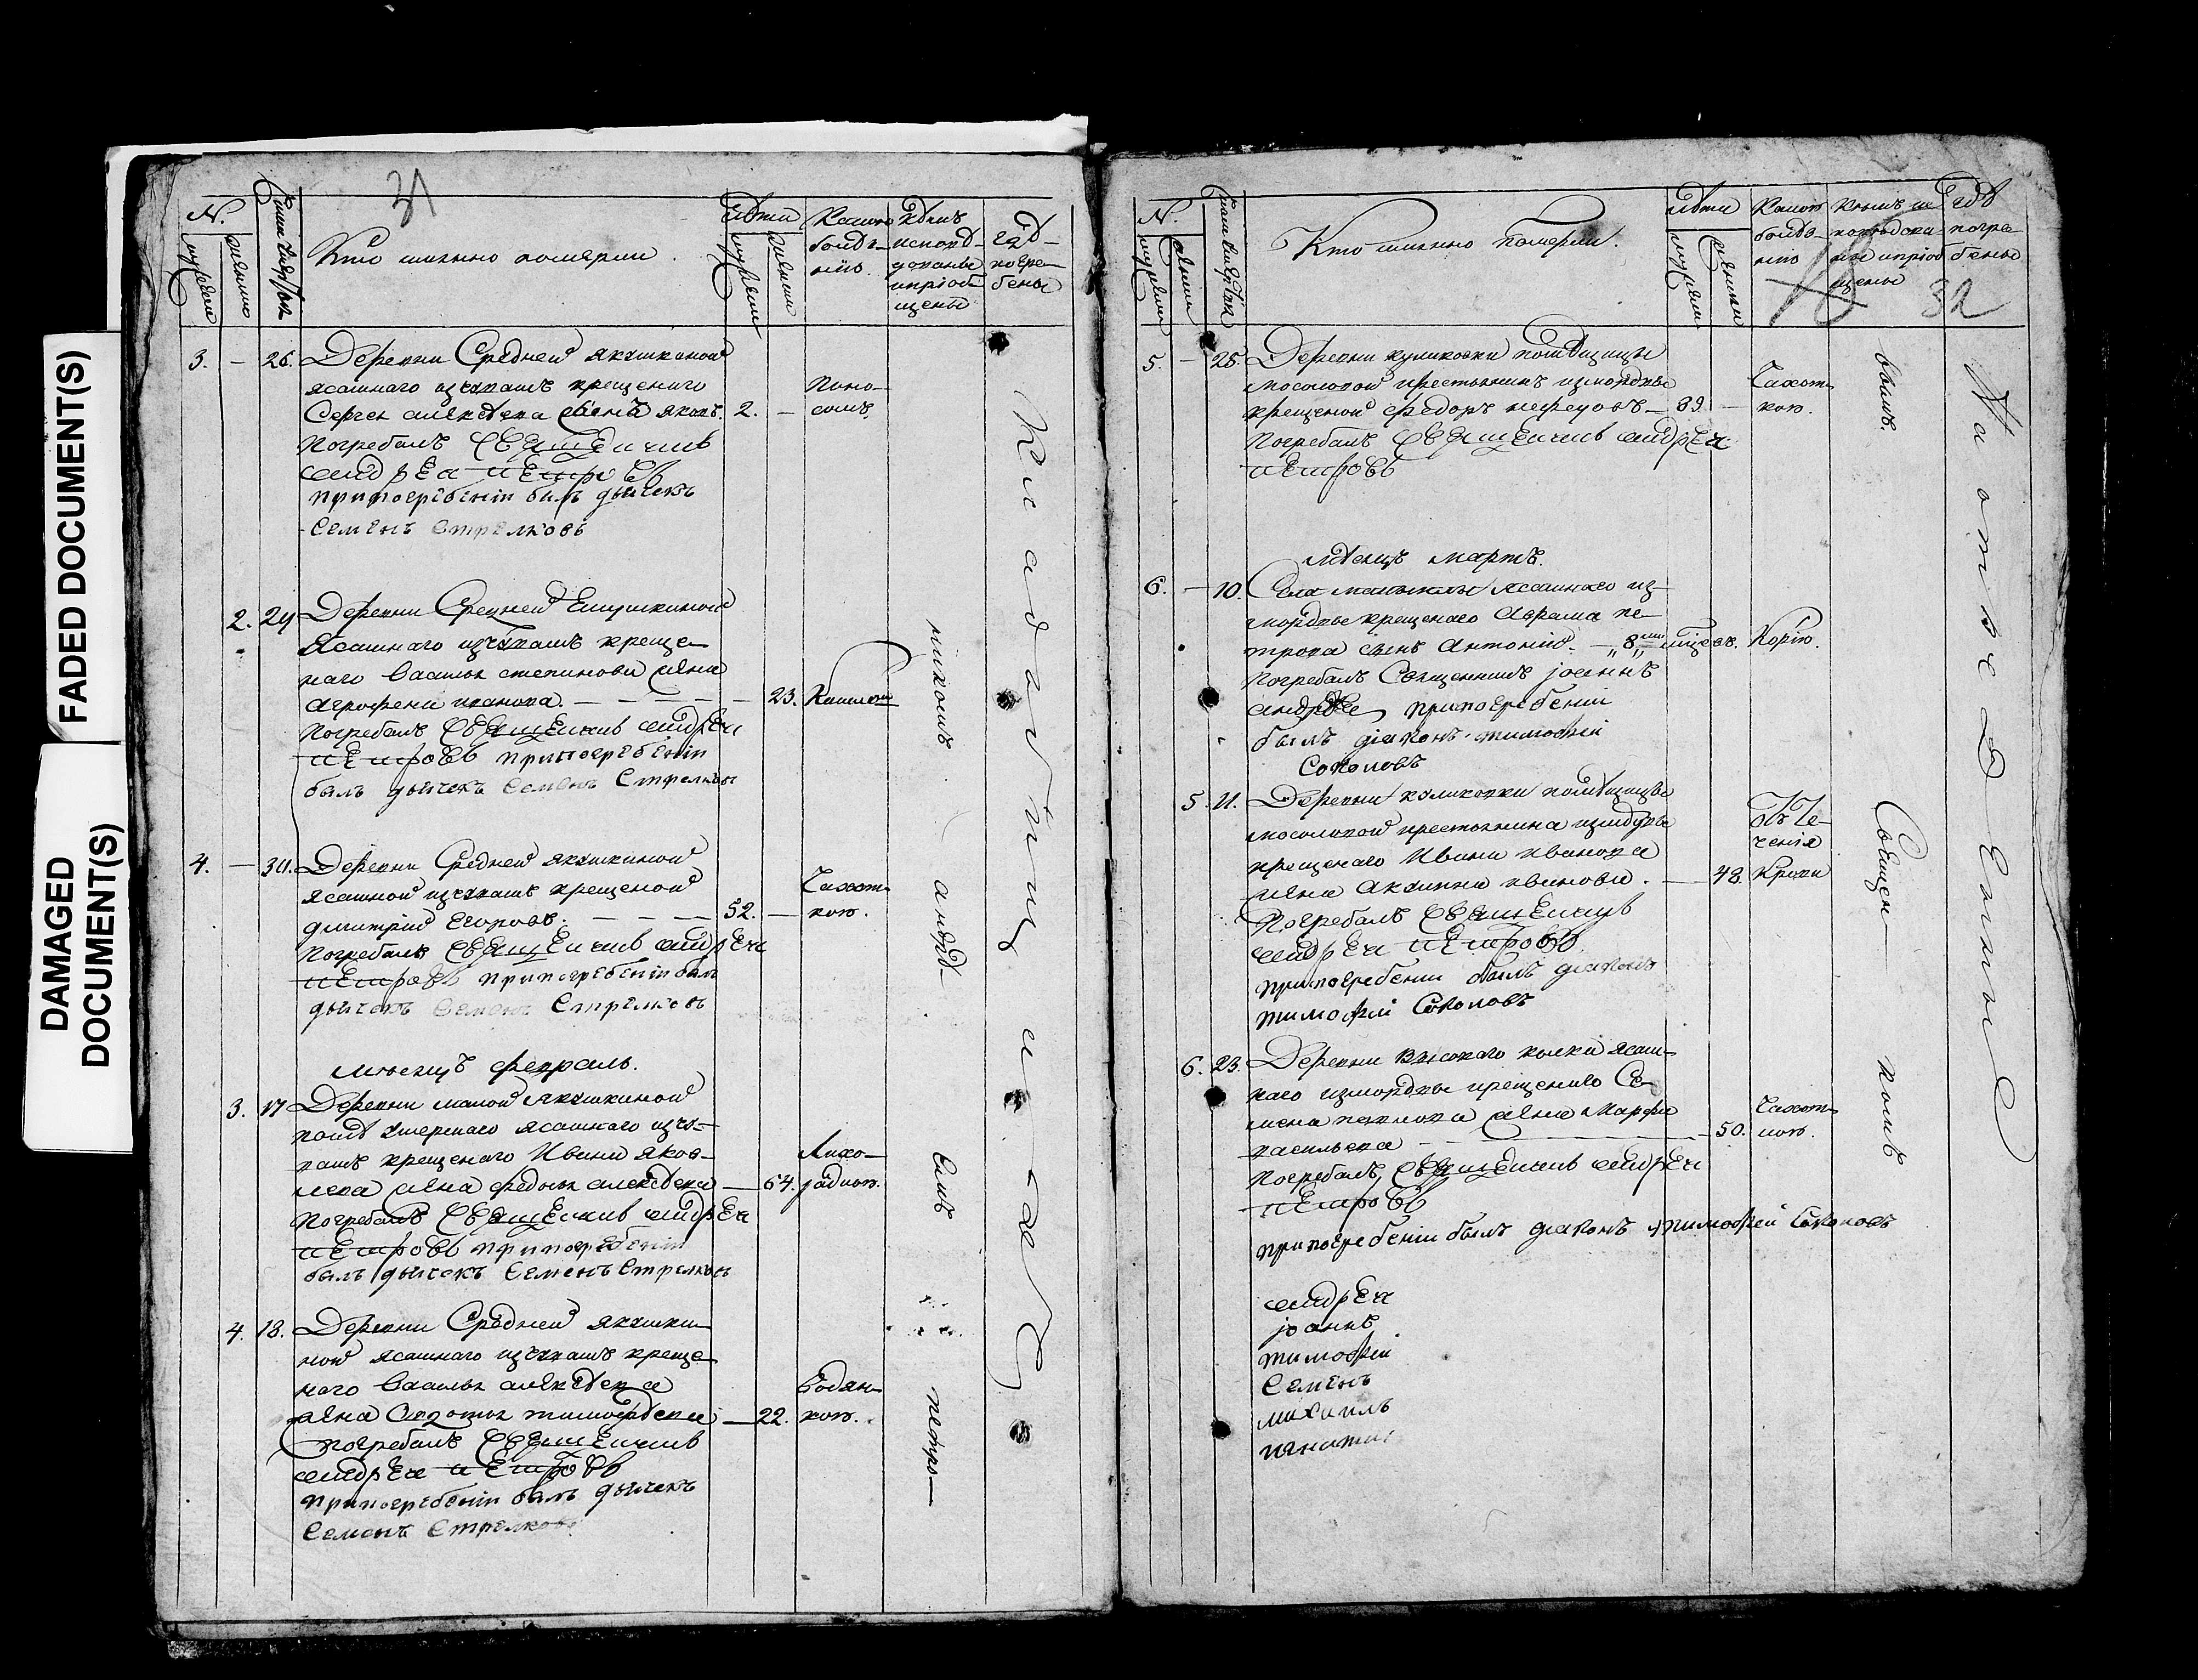 FADED DOCUMENT(S)
DAMAGED
DOCUMENT(S)
31
№.
мужеска
женска
Кто имянно померли.
Лѣта
мужеска
женска
Какою
болѣз-
нію.
Кѣмъ
исповѣ-
дованы
и пріоб
щены
Гдѣ
погре-
бены
3. — 26. Деревни Средней Якушкиной
ясашнаго изчувашъ крещенаго
Сергея алексѣева сынъ яковъ. 2. —
Поно-
сомъ.
Погребалъ Священникъ
андреи петровъ
припогребеніи былъ дьячекъ
Семенъ Стрелковъ
2. 29 Деревни Средней Якушкиной
Ясашнаго изчувашъ креще-
наго Василья степанова жена
Агрофена иванова. — — — — 23. Кашлемъ
Погребалъ Священникъ андреи
петровъ припогребеніи
былъ дьячекъ Семенъ Стрелковъ
4. — 30. Деревни Средней Якушкиной
ясашной изчувашъ крещеной
дмитрій Егоровъ. — — — 52. —
Чахот-
кою.
Погребалъ Священникъ андреи
петровъ припогребеніи былъ
дьячекъ Семенъ Стрелковъ
Мѣсяцъ февраль.
3. 17 Деревни малой Якушкиной
ясашнаго изчу-
вашъ крещенаго Ивана яков-
лева жена федосья алексѣева — 64.
Лихо-
радкою.
Погребалъ Священникъ андреи
петровъ припогребеніи
былъ дьячекъ Семенъ Стрелковъ
4. 18. Деревни Средней якушки-
ной ясашнаго изчувашъ креще-
наго Василья алексѣева
жена Авдотья тимофѣева — 22.
Водян-
кою.
Погребалъ Священникъ
андреи петровъ
припогребеніи былъ дьячекъ
Семенъ Стрелковъ
никомъ андрѣ емъ петро-
На кладбищ
32
№.
мужеска
женска
Кто имянно померли.
лѣта
мужеска
женска
Какою
болѣз-
нію
Кѣмъ и
сповѣдова-
ны и пріоб
щены
Гдѣ
погре-
бены
5. — 25. Деревни куликовки помѣщицы
мосоловой крестьянинъ измордвы
крещеной федоръ нефедовъ — 89. —
Чахот-
кою.
Погребалъ Священникъ андреи
петровъ
мѣсяцъ мартъ.
6. — 10. Села ясашнаго из-
мордвы крещенаго Аврама пе-
трова сынъ Антоній. — „8„ мѣсяц. Корію.
Погребалъ Священникъ іоаннъ
андрѣевъ припогребеніи
былъ діаконъ тимофѣй
Соколовъ
5. 11. Деревни куликовки помѣщицы
мосоловой крестьянина измордвы
крещенаго Ивана иванова
жена акулина иванова. — 48.
Отъ те-
ченія
крови
Погребалъ Священникъ
андреи петровъ.
припогребении былъ діаконъ
тимофѣй Соколовъ
6. 23. Деревни Высокаго колка ясаш-
наго измордвы крещенаго Се-
мена павлова жена Марфа
васильева — — 50.
Чахот-
кою.
Погребалъ Священникъ андреи
петровъ
припогребеніи былъ діаконъ тимофѣй Соколовъ
андреи
іоаннъ
тимофѣй
Семенъ
михаилъ
игнатій
вымъ. Священ- комъ
На отведенномъ